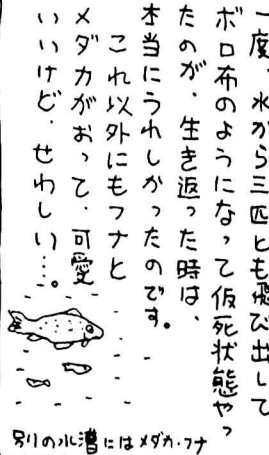 一度、水から三匹とも飛び出して
ボロ布のようになって仮死状態やっ
たのが、生き返った時は、
本当にうれしかったのです。
これ以外にもフナと
メダカがおって、可愛
いいけど、せわしい…。
別の水漕にはメダカ・フナ